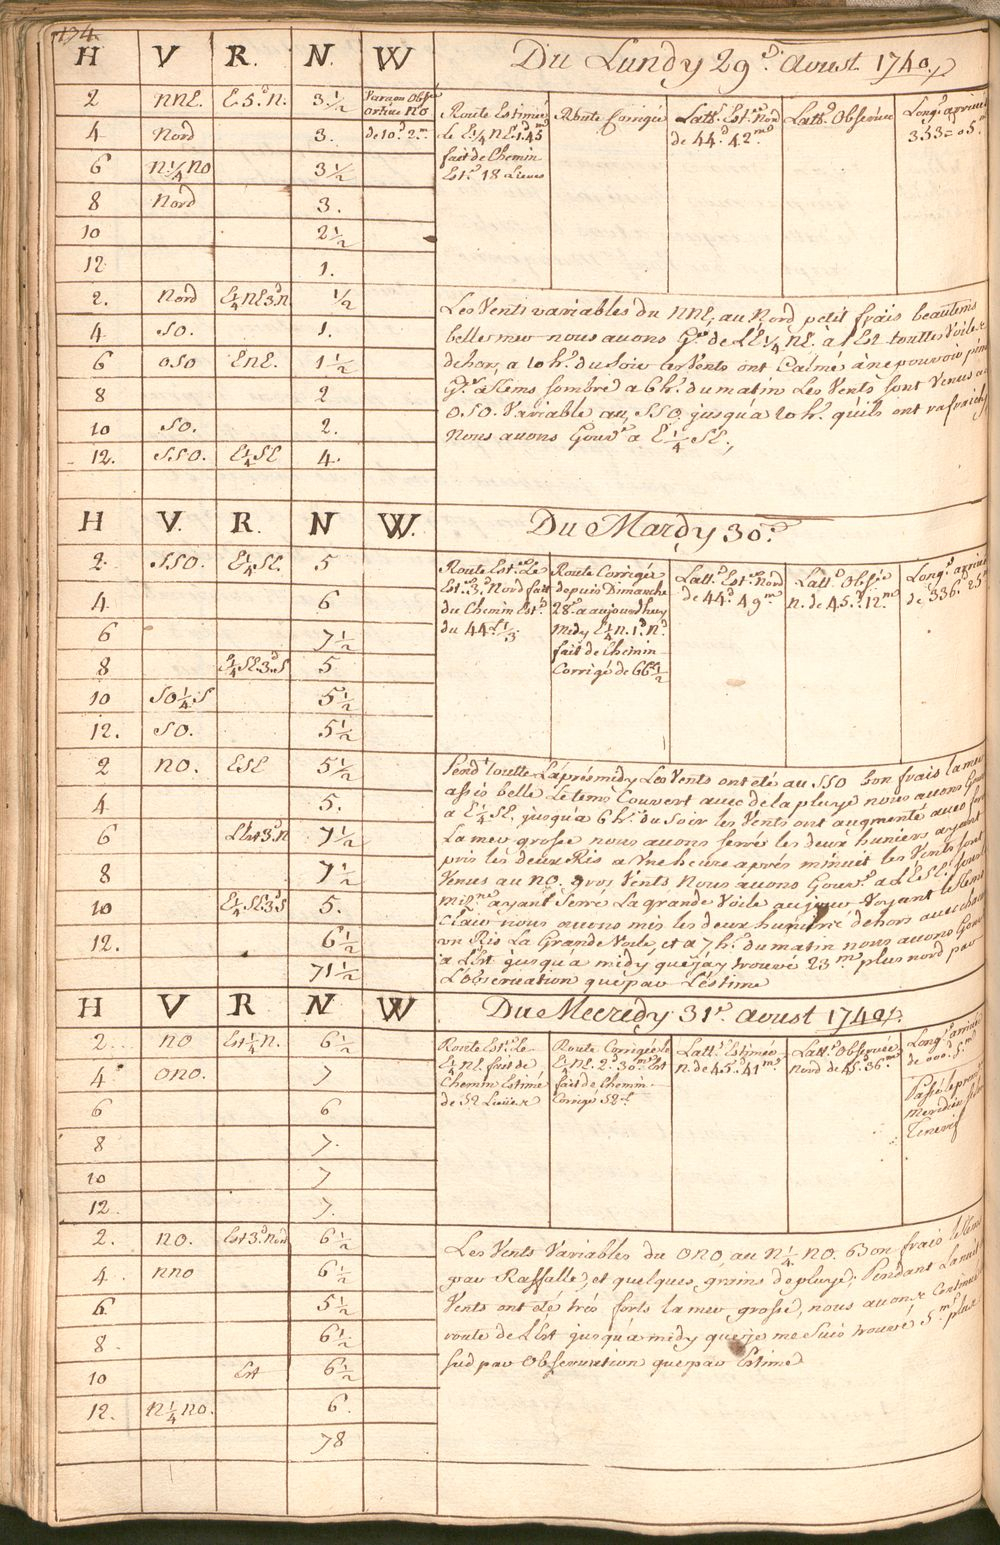 174.
H V. R. N. W Du Lundy 29.d Aoust 1740
2 NNE. E 5.d N. 3 ½ Par mon Obse
ortive NO
4 Nord 3. de 10.d 2.m
6 N ¼ NO 3 ½
8 Nord 3.
10 2 ½
12 1.
2. Nord E ¼ NE 3.d N ½
4 SO. 1.
6 OSO ENE. 1 ½
8 2
10 SO. 2.
12. SSO. E ¼ SE 4.
Route Estimée
Le E ¼ NE 1.d 45.m
fait de Chemin
Est.e 18 Lieues
Route Corrigée
Latt. Est.ée Nord
de 44.d 42.m
Latt. Observée
Long.e arrivée
353.d 05.m
Les Vents variables du NNE, au Nord petit frais beautems
belle mer nous avons G.né de L'E ¼ NE. à l'Est touttes Voiles
dehors, a 10 h. du Soir les Vents ont Calmé à ne pouvoir
G.er le tems sombre a 6 h. du matin Les Vents sont Venus a
O.SO. Variable au SSO. jusqu'a 10 h. qu'ils ont rafraichy
Nous avons Gouv.é a E ¼ SE.,
H V. R. N W. Du Mardy 30.e
2. SSO. E ¼ SE. 5
4. 6
6 7 ½
8 E ¼ SE 3.d S 5
10 SO ¼ S 5 ½
12. SO. 5 ½
2 NO. ESE 5 ½
4. 5.
6 L'Est 3.d N 7 ½
8 7 ½
10 E ¼ SE 3.d S 5.
12. 6 ½
71 ½
Route Est.ée Le
Est. 3.d Nord fait
du Chemin Est.é
du 44 L ⅓
Route Corrigée
depuis Dimanche
28.e a aujourdhuy
midy E ¼ N. 1.d N.d
fait de Chemin
Corrigé de 66 L ½
Latt. Est.ée Nord
de 44.d 49.m
Latt. Obsée
N. de 45.d 12.m
Long.e arrivée
de 336.d 25.m
Pend.t toutte L'aprésmidy Les Vents ont été au SSO bon frais la mer
assés belle Le tems Couvert avec de la pluye nous avons Gouv
a E ¼ SE, jusqu'a 6 h. du Soir les Vents ont augmenté avec
La mer grosse nous avons serré les deux huniers ayant
pris les deux Ris a Une heure aprés minuit les Vents sont
Venus au NO. gros Vents Nous avons Gouv.é a L'ESE. sous
Miz.ne ayant Serré La grande Voile au jour Voyant le tems
Clair nous avons mis les deux huniers dehors avec chacun
un Ris La Grande Voile, et a 7 h. du matin nous avons Gouv
a L'Est jusqu'a midy que j'ay trouvé 23.m plus nord par
L'observation que par L'estime
H V. R N W Du Mecredy 31.e Aoust 1740.
2. NO Est ¼ N. 6 ½
4 ONO. 7
6 6
8 7.
10 7
12. 7.
2. NO. Est 3.d Nord 6 ½
4 NNO 6 ½
6 5 ½
8 6 ½
10 Est 6 ½
12. N ¼ NO. 6.
78
Route Est.ée Le
E ¼ NE fait de
Chemin Estimé
de 52 Lieües
Route Corrigée le
E ¼ NE. 2.d 30.m Est
fait de Chemin
Corrigé 52 L
Latt. Estimée
N. de 45.d 41.m
Latt. Observée
Nord de 45.d 36.m
Long.e arrivée
de 000.d 5.m
Passé le
meridien
Tenerif
Les Vents Variables du ONO, au N ¼ NO. Bon frais le tems
par Raffalle, et quelques grains de pluye, Pendant La nuit
Vents ont été trés forts la mer grosse, nous avons Continué
route de L'Est jusqu'a midy que je me Suis trouvé 5.m plus
sud par Observation que par Estime